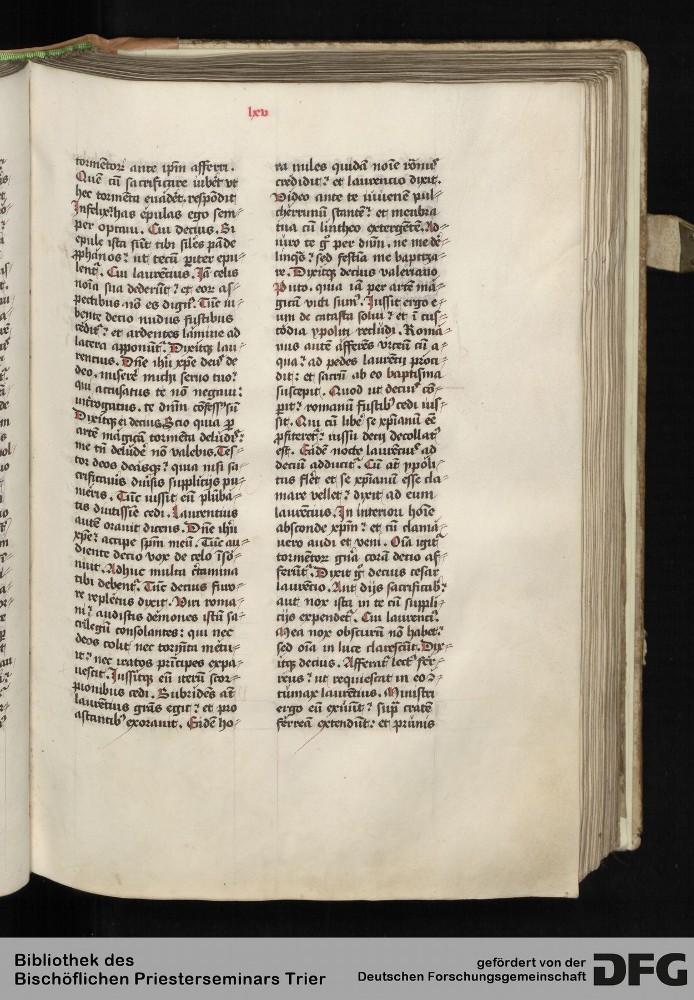 lxv
tormētorͬ ante ip̄m afferri.
Quē cū sacrificare iubet vt
hec tormēta euadet. respōdit
Infelix has epulas ego sem⸗
per optaui. Cui decius. Si
epule iste sūt tibi siles pāde
ꝓphanos: ut tecū pͥter epu⸗
lentͬ. Cui laurētius. Iā celis
noīa sua dederūt: et eorͬ as⸗
pectibus nō es dignꝰ. Tūc iu⸗
bente decio nudus fustibus
cedit: et ardentes lamine ad
latera apponūtͬ. Dixitqꝫ lau⸗
rentius. Dn̄e ih̄u xp̄e deus de
deo, miserē michi seruo tuo:
qui accusatus te nō negaui:
intrrogatus. te dn̄m cōfessꝰ sū
Dixitqꝫ ei decius. Scio quia ꝑ
artē magicā tormēta deludis:
me tn̄ deludē nō valebis. Tes⸗
tor deos deasqꝫ: quia nisi sa⸗
crificauis diuīsis supplicijs pu⸗
nieris. Tūc iussit eū plūba⸗
tis diutissīe cedi. Laurentius
autē orauit dicens. Dn̄e ih̄u
xp̄e: accipe sp̄m meū. Tūc au⸗
diente decio vox de celo īsō⸗
nuit. Adhuc multa c̄tamina
tibi debentͬ. Tūc decius furo⸗
re repletus dixit. Viri roma⸗
ni: audistis demones istū sa⸗
crilegū consolantes: qui nec
deos colit nec torm̄ta metu⸗
it: nec iratos prīcipes expa⸗
uescit. Iussitqꝫ eū iterū scor⸗
pionibus cedi. Subridēs aūt
laurētius grās egit: et pro
astantibꝰ exorauit. Eidē ho⸗
ra miles quidā noīe rōmꝰ
credidit: et laurencio dixit.
Video ante te iuuenē pul⸗
cherrimū stantē: et menbra
tua cū lintheo extergētē. Ad⸗
iuro te gͦ per dn̄m. ne me de⸗
linqͣs: sed festīa me baptiza⸗
re. Dixitqꝫ decius valeriano
Puto. quia iā per artē ma⸗
gicā victi sumꝰ. Iussit ergo e⸗
um de catasta solui: et ī cus⸗
tōdia ypoliti recludi. Romā⸗
nus autē afferēs vrceū cū a⸗
qua: ad pedes laurētij proci⸗
dit: et sacrū ab eo baptisma
suscepit. Quod ut decius cō⸗
ꝑit: romanū fustibꝰ cedi ius⸗
sit. Qui cū libē se xp̄ianū eē
ꝓfiteretͬ: iussu decij decollatꝰ
est. Eidē nocte laurētius ad
deciū adducitͬ. Cū aūt ypoli⸗
tus flēt et se xp̄ianū esse cla⸗
mare vellet: dixit ad eum
laurētius. In interiori hoīe
absconde xp̄m: et cū clama⸗
uero audi et veni. Oīa igitͬ
tormētorͬ gn̄a corā decio af⸗
ferūtͬ. Dixit gͦ decius cesar
laurētio. Aut dijs sacrificabꝭ
aut nox ista in te cū suppli⸗
cijs expendetͬ. Cui laurencꝰ.
Mea nox obscurū nō habet:
sed oīa in luce clarescūt. Dix⸗
itqꝫ decius. Afferatͬ lectꝰ fer⸗
reus: ut requiescat in eo ꝯ⸗
tumax laurētius. Ministri
ergo eū exuūt: supͣ cratē
ferrea extendūt: et prunis
Bibliothek des
Bischöflichen Priesterseminars Trier
gefördert von der
Deutschen Forschungsgemeinschaft
DFG